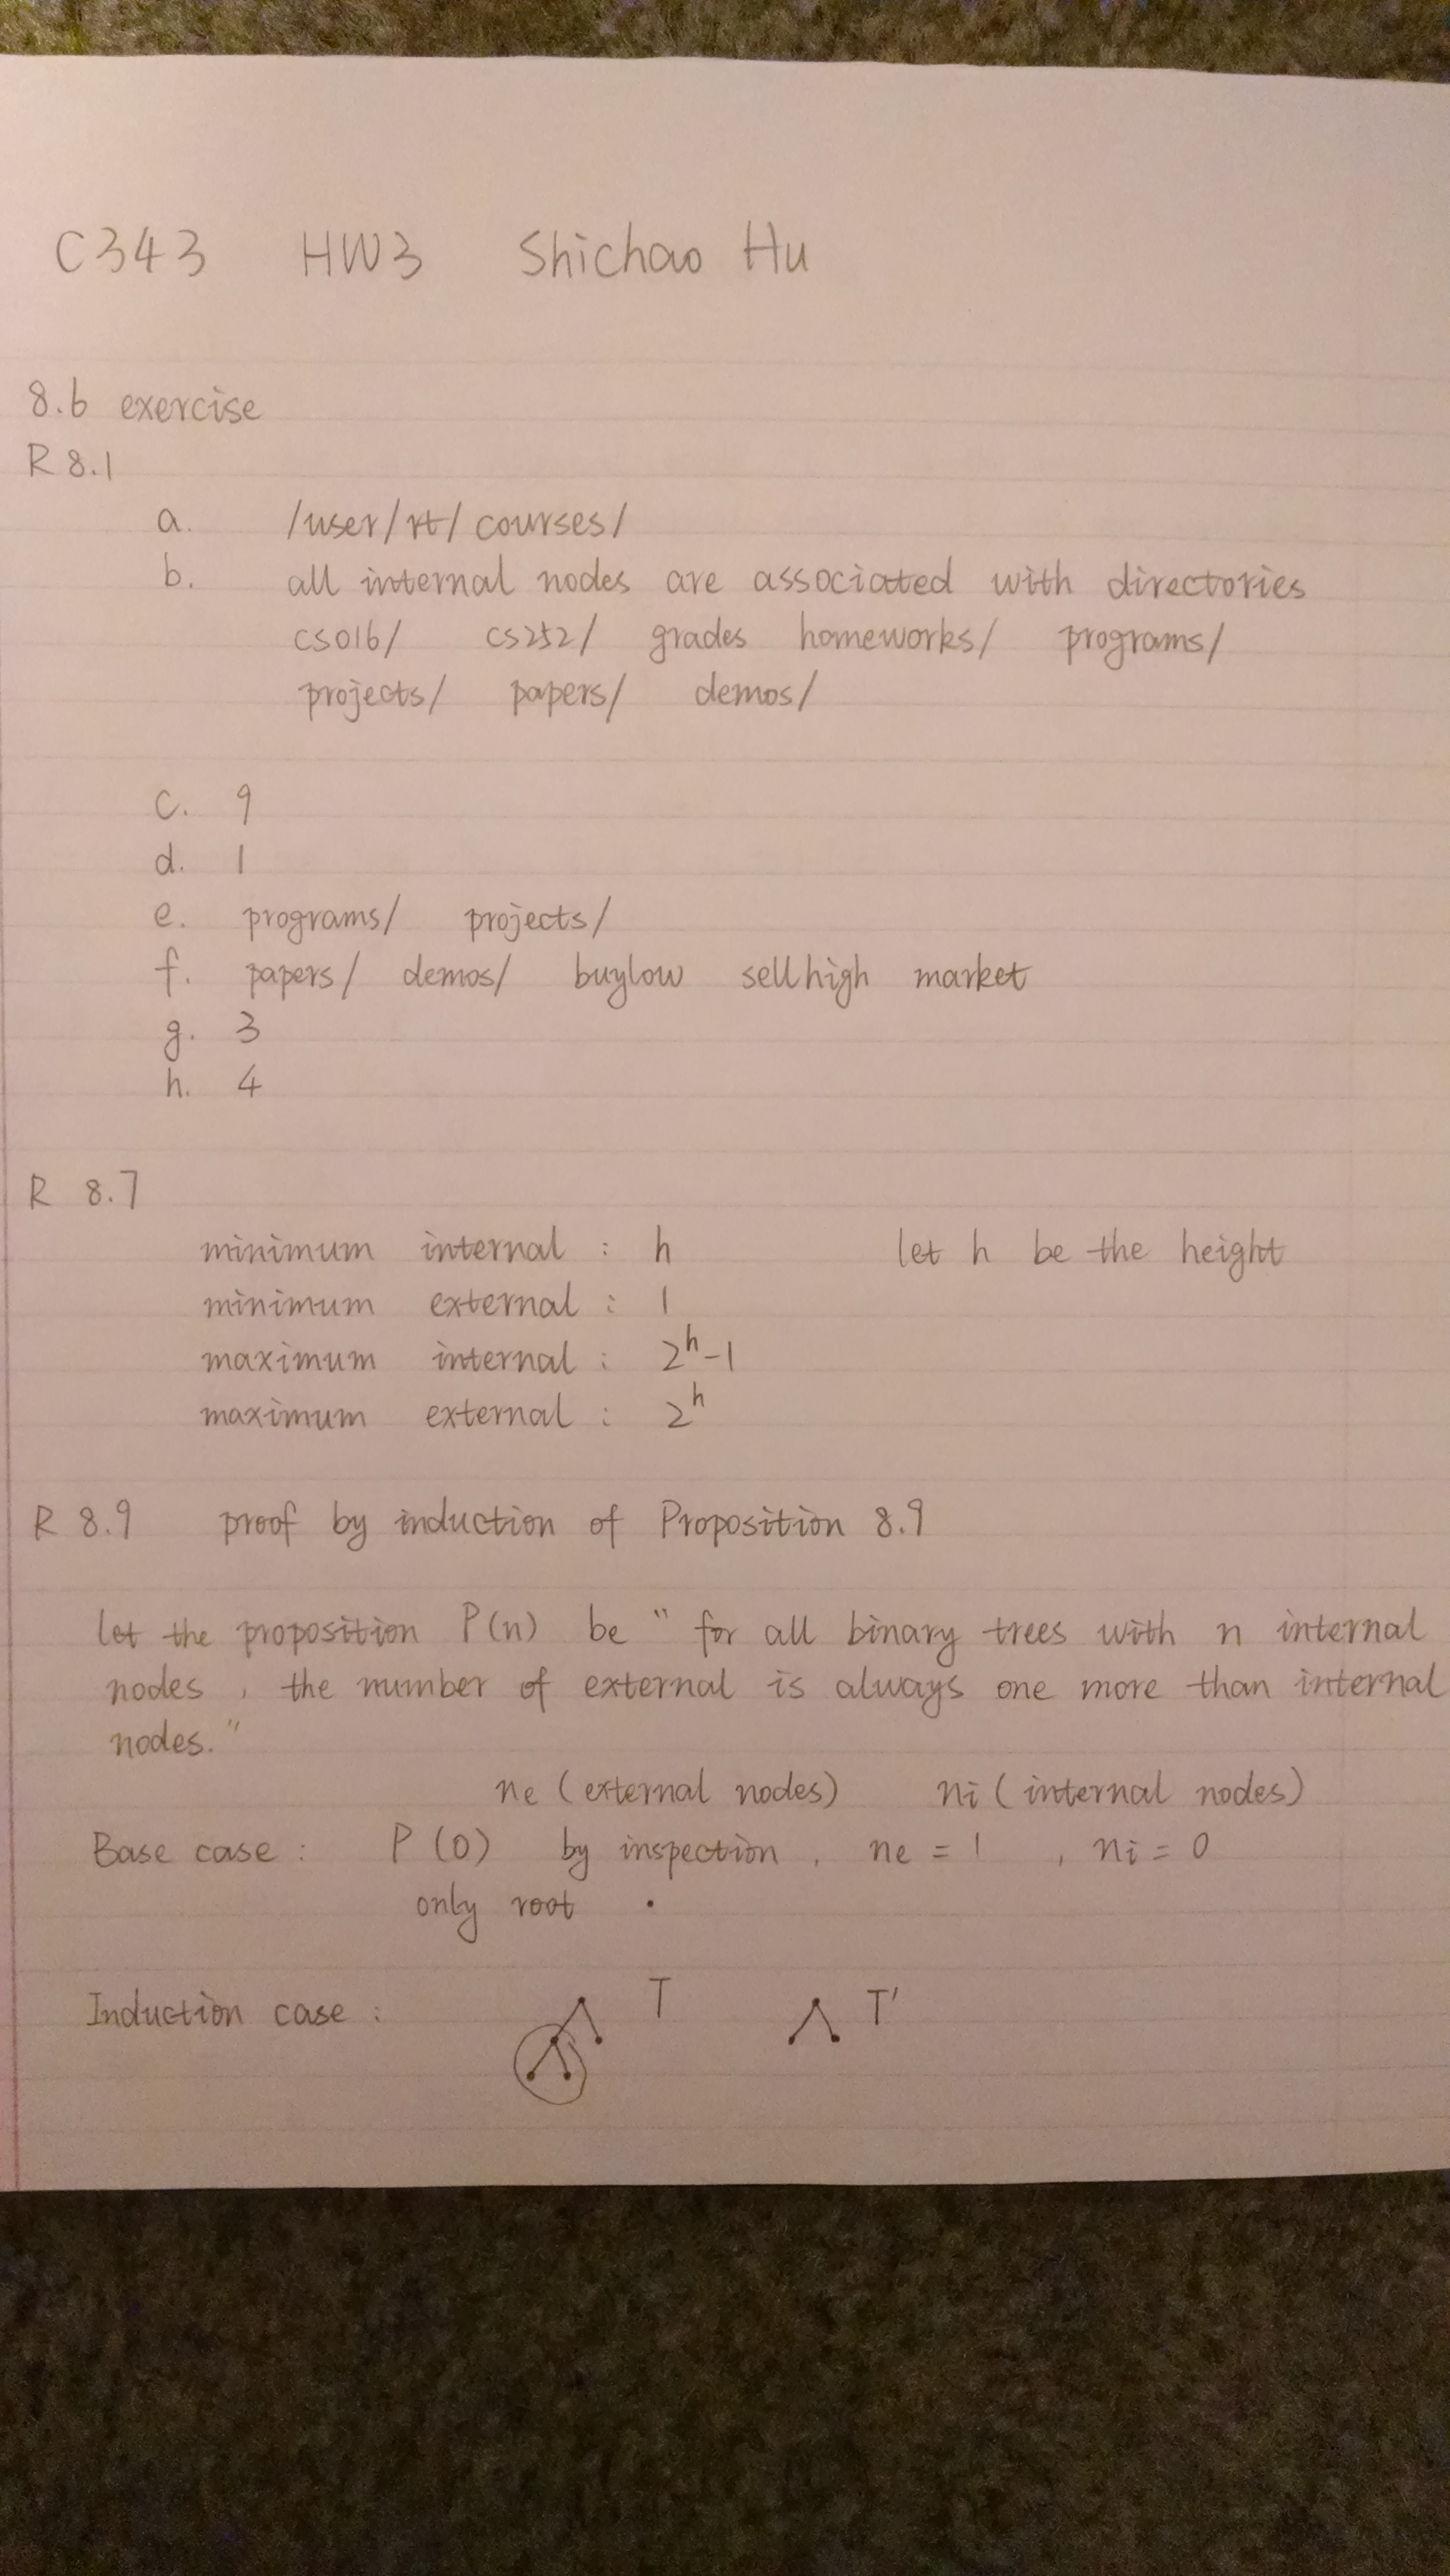 C343 HW3 Shichao Hu
8.6 exercise
R 8.1
a. /user/rt/courses/
b. all internal nodes are associated with directories
cs016/ cs252/ grades homeworks/ programs/
projects/ papers/ demos/
c. 9
d. 1
e. programs/ projects/
f. papers/ demos/ buylow sellhigh market
g. 3
h. 4
R 8.7
minimum internal : h let h be the height
minimum external : 1
maximum internal : 2^h-1
maximum external : 2^h
R 8.9 proof by induction of Proposition 8.9
let the proposition P(n) be " for all binary trees with n internal
nodes , the number of external is always one more than internal
nodes."
ne (external nodes) ni (internal nodes)
Base case : P(0) by inspection , ne = 1 , ni = 0
only root
Induction case : T T'